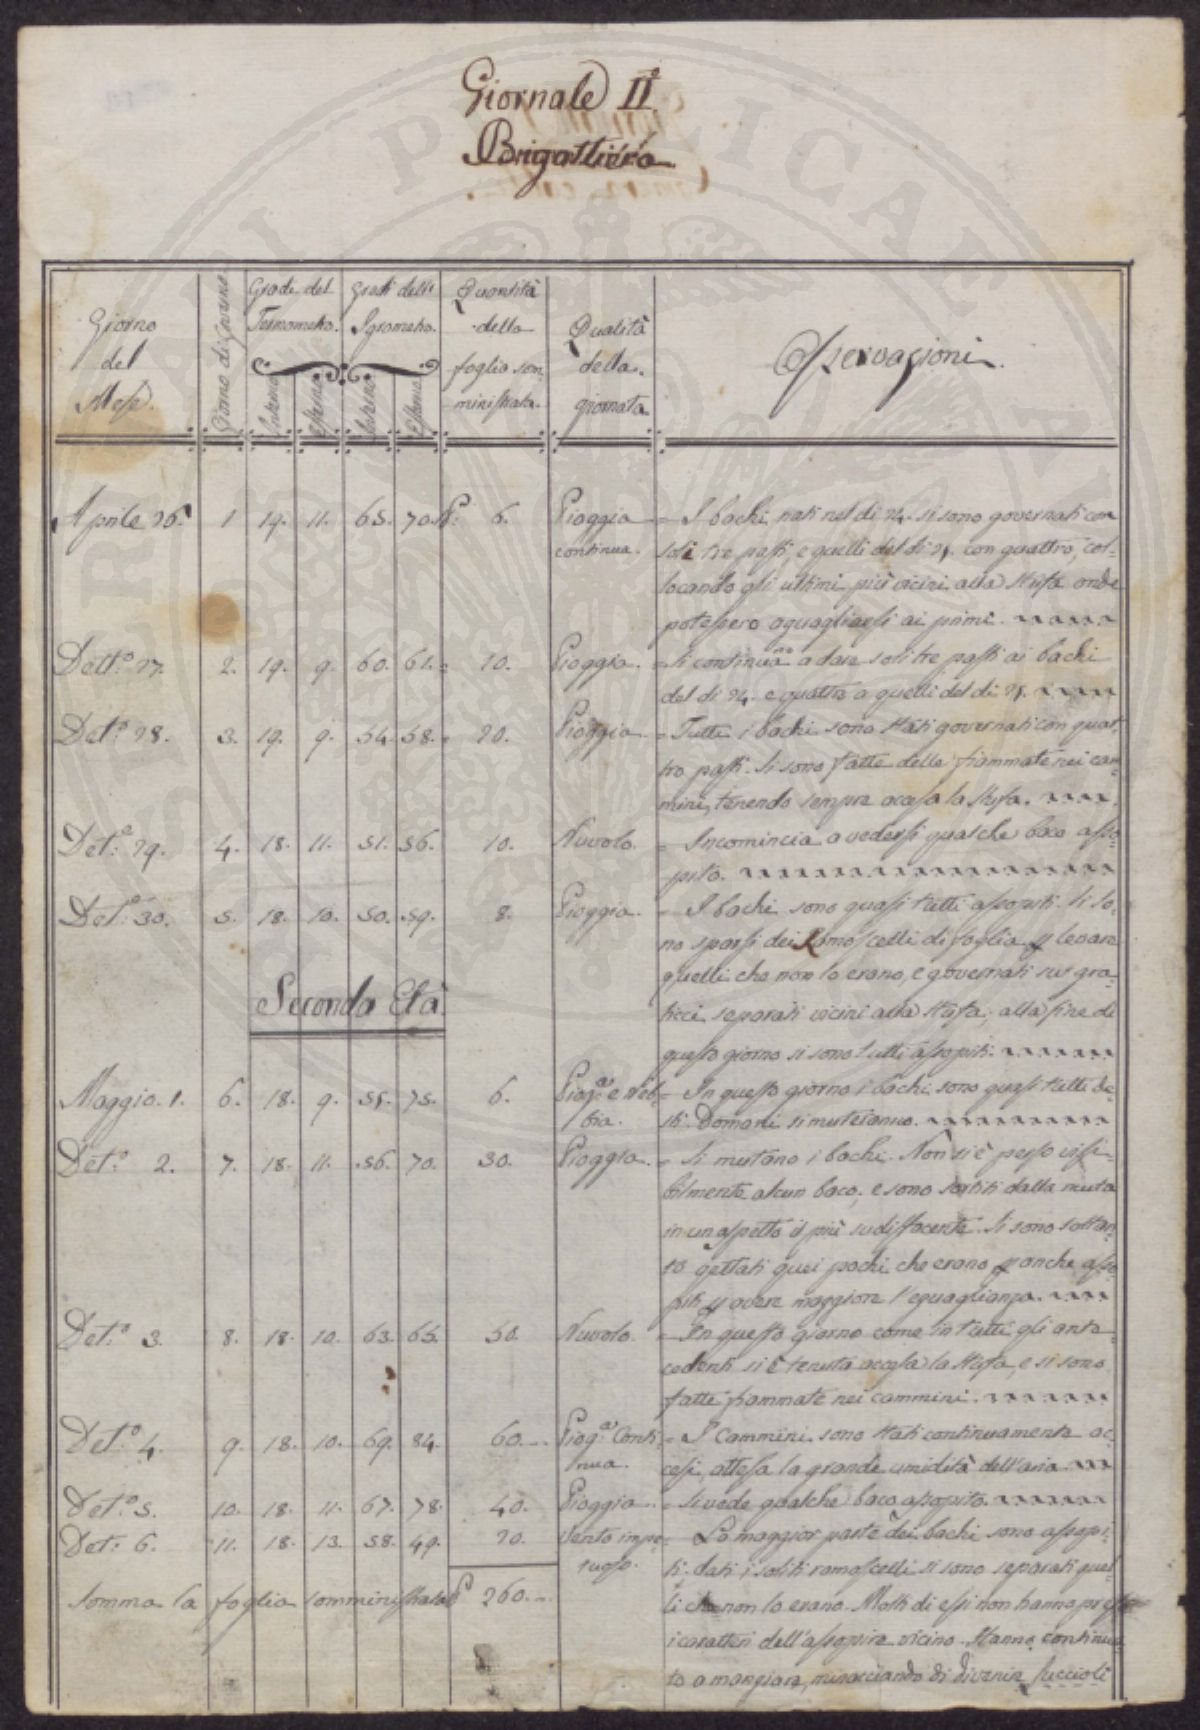 Giornale II.
Brigattiera
Giorno
del
Mese.
Giorno di
Gradi del
Termometro.
Interno
Esterno
Gradi dell'
Igrometro.
Interno
Esterno
Quantità
della
foglia som=
ministrata.
Qualità
della
giornata
Osservazioni.
Aprile 26. 1 19. 11. 65. 70. 6. Pioggia = I bachi nati nel dì 24. si sono governati con
continua. soli tre pasti, e quelli del dì 25. con quattro, col=
locando gli ultimi più vicini alla stufa onde
potessero aguagliarsi ai primi.
Dett.º 27. 2. 19. 9. 60. 61. = 10. Pioggia. = Si continua a dare soli tre pasti ai bachi
del dì 24. e quattro a quelli del dì 25.
Det.º 28. 3. 19. 9. 54. 58. 20. Pioggia = Tutti i bachi sono stati governati con quat=
tro pasti. Si sono fatte delle fiammate nei cam=
mini, tenendo sempre accesa la stufa.
Det.º 29. 4. 18. 11. 51. 56. 10. Nuvolo. = Incomincia a vedersi qualche baco asso=
pito.
Det.º 30. 5. 18. 10. 50. 59. 8. Pioggia. = I bachi sono quasi tutti assopiti. Si so=
no sparsi dei Ramoscelli di foglia p levare
quelli che non lo erano, e governati sui gra=
ticci separati vicini alla stufa; alla fine di
questo giorno si sono tutti assopiti.
Seconda Età
Maggio. 1. 6. 18. 9. 55. 75. 6. Piog.ª e Neb= = In questo giorno i bachi sono quasi tutti de=
bia. sti. Domani si muteranno.
Det.º 2. 7. 18. 11. 56. 70. 30. Pioggia. = Si mutano i bachi. Non si è perso visi=
bilmente alcun baco, e sono sortiti dalla muta
in un aspetto il più sudisfacente. Si sono soltan=
to gettati quei pochi che erano p anche asso=
piti p avere maggiore l'eguaglianza.
Det.º 3. 8. 18. 10. 63. 65. 50. Nuvolo. = In questo giorno come in tutti gli ante=
cedenti si è tenuta accesa la stufa, e si sono
fatte fiammate nei cammini.
Det.º 4. 9. 18. 10. 69. 84. 60. Piog.ª Conti= = I Cammini sono stati continuamente ac=
nua. cesi, attesa la grande umidità dell'aria.
Det.º 5. 10. 18. 11. 67. 78. 40. Pioggia. = Si vede qualche baco assopito.
Det.º 6. 11. 18. 13. 58. 49. 20. Vento impe= = La maggior parte dei bachi sono assopi=
tuoso. ti. Dati i soliti ramoscelli si sono separati quel=
Somma la foglia somministrata P 260. li che non lo erano. Molti di essi non hanno preso
i caratteri dell'assopire vicino. Hanno continua=
to a mangiare, minacciando di divenire luccioli